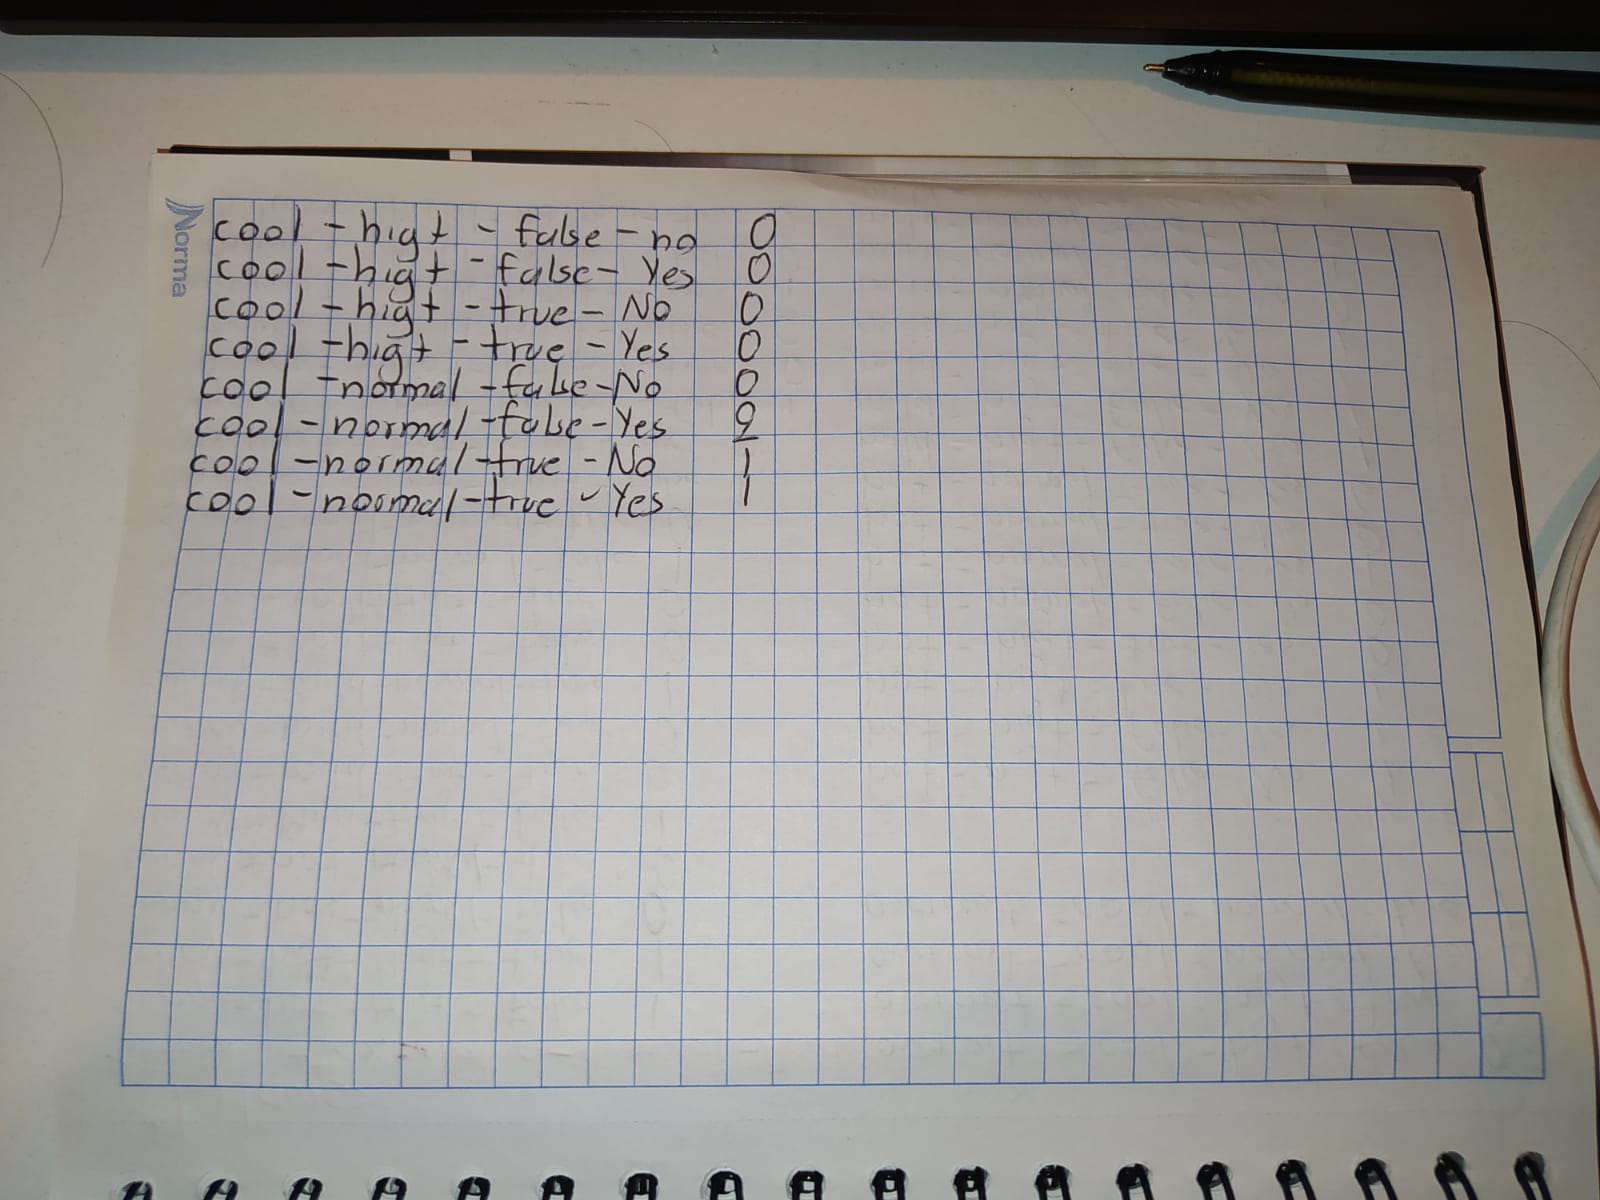 Norma
cool - higt - false - no 0
cool - higt - false - Yes 0
cool - higt - true - No 0
cool - higt - true - Yes 0
cool - normal - false - No 0
cool - normal - false - Yes 2
cool - normal - true - No 1
cool - normal - true - Yes 1